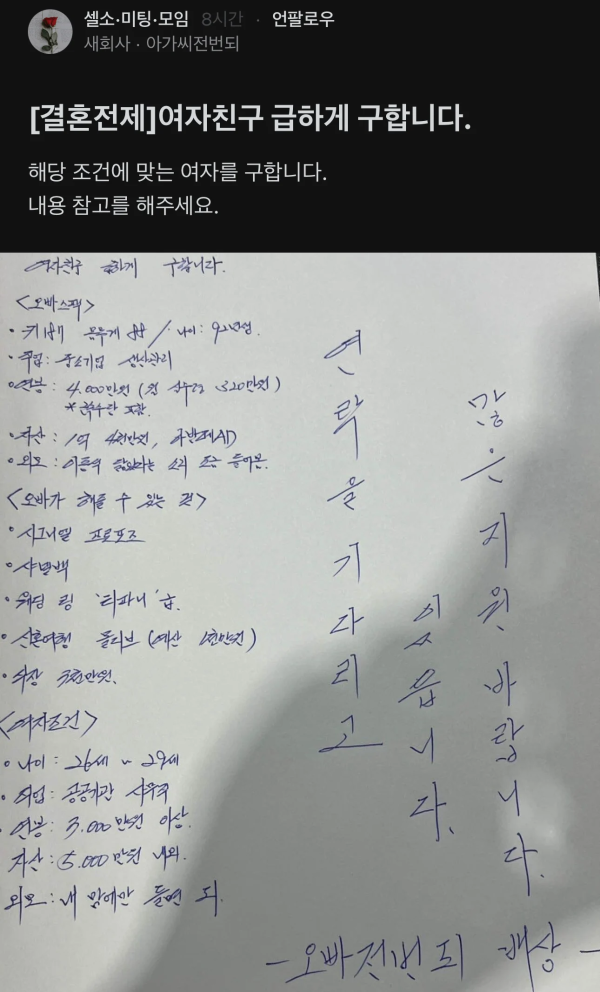 셀소·미팅·모임 8시간 · 언팔로우
새회사 · 아가씨전번되
[결혼전제]여자친구 급하게 구합니다.
해당 조건에 맞는 여자를 구합니다.
내용 참고를 해주세요.
여자친구 급하게 구합니다.
<오빠스펙>
• 키 몸무게 / 나이: 92년생.
• 직업: 중소기업 생산관리
• 연봉: 4.000만원 (월 실수령 320만원)
* 포함.
• 자산: 1억 4천만원,
• 외모: 이동욱 닮았다는 소리 조금 들어봄.
<오빠가 해줄 수 있는 것>
• 시그니엘 프로포즈
• 샤넬백
• 웨딩 링 '티파니' 급.
• 신혼여행 몰디브 (예산 1천만원)
• 차장 3천만원.
<여자조건>
• 나이: 26세 ~ 29세
• 직업: 공공기관 사무직
• 연봉: 3.000만원 이상.
자산: 5.000만원 내외.
외모: 내 맘에만 들면 되.
많은 지원 바랍니다.
연락을 기다리고
있읍니다.
- 오빠전번되 배상 -